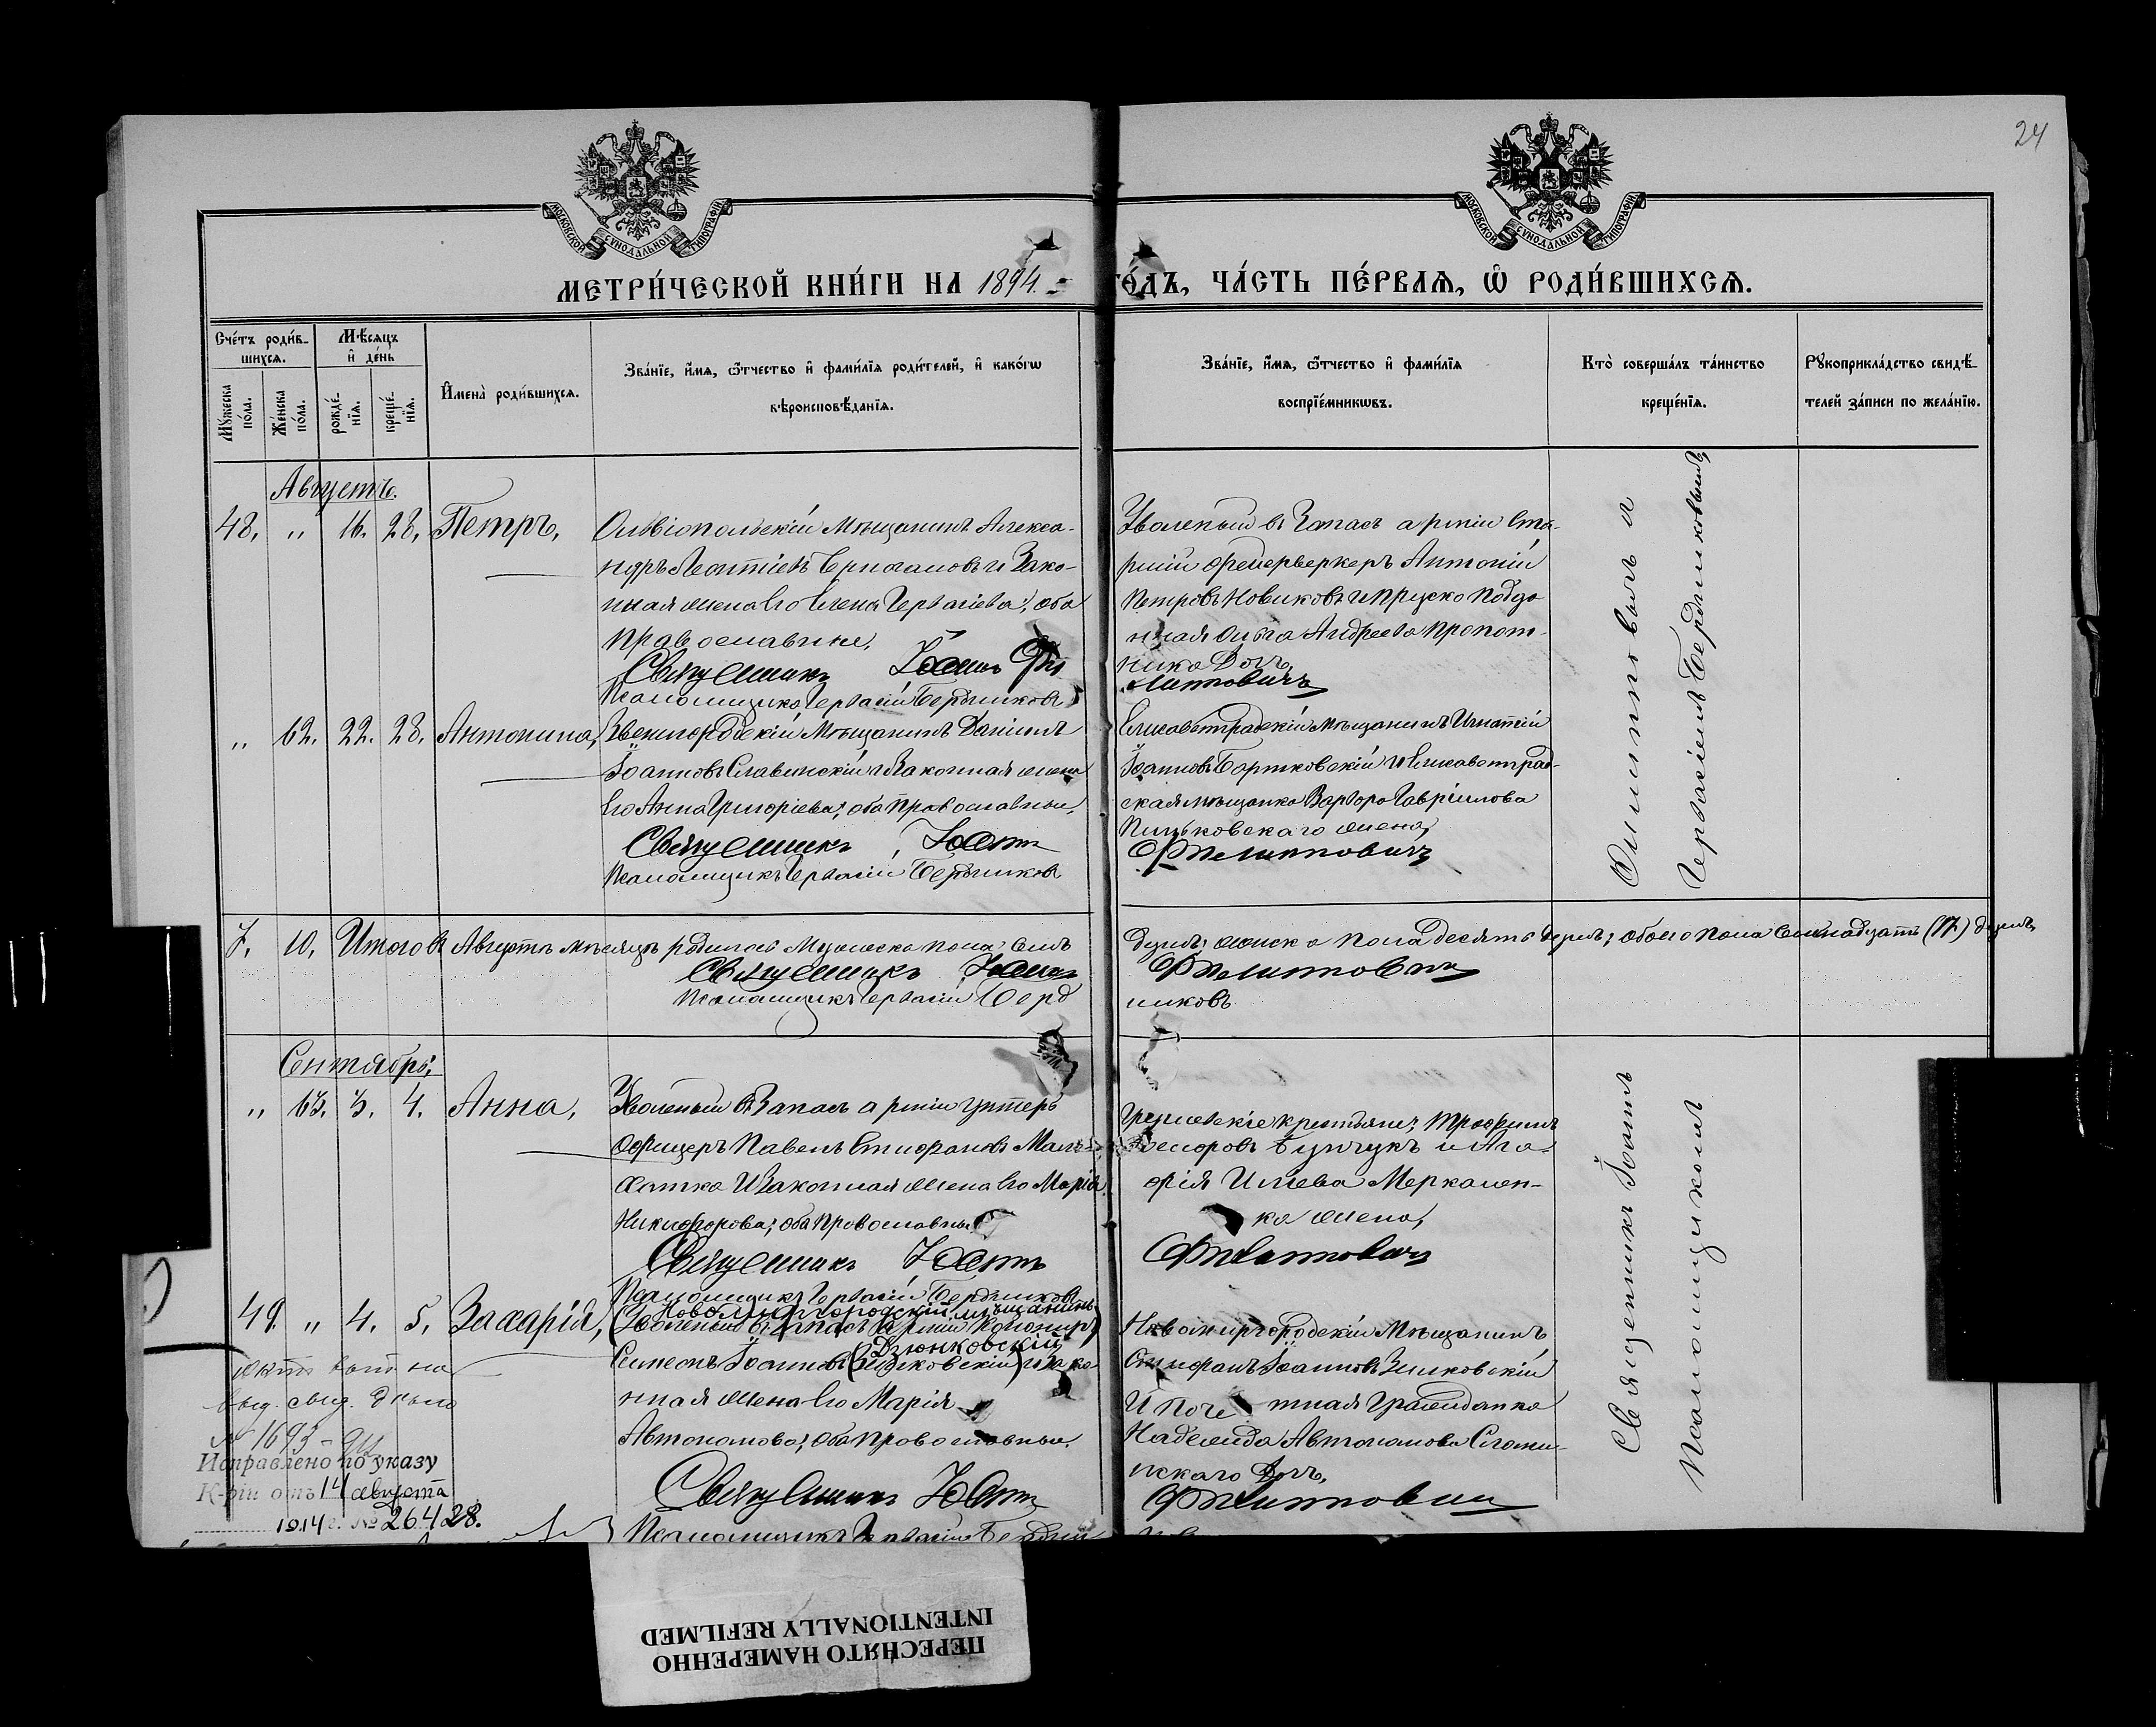 24
МОСКОВСКОЙ СѴНОДАЛЬНОЙ ТИПОГРАФІИ
МОСКОВСКОЙ СѴНОДАЛЬНОЙ ТИПОГРАФІИ
МЕТРИ́ЧЕСКОЙ КНИ́ГИ НА 1894 ГО́ДЪ, ЧА́СТЬ ПЕ́РВАѦ, Ѡ҆ РОДИ́ВШИХСѦ.
Сче́тъ роди́в-
шихсѧ.
Мѣ́сѧцъ
и҆ де́нь
Мꙋ́жеска
по́ла.
Же́нска
по́ла.
рожде́-
нїѧ.
креще́-
нїѧ.
И҆мена̀ роди́вшихсѧ.
Зва́нїе, и҆́мѧ, ѻ҆́тчество и҆ фами́лїѧ роди́телей, и҆ како́гѡ
вѣроисповѣ́данїѧ.
Зва́нїе, и҆́мѧ, ѻ҆́тчество и҆ фами́лїѧ
воспрїе́мникѡвъ.
Кто̀ соверша́лъ та́инство
креще́нїѧ.
Рꙋкоприкла́дство свидѣ́-
телей за́писи по жела́нїю.
Августъ.
48. " 16. 28. Петръ,
Ольвіопольскій Мѣщанинъ Алекса-
ндръ Леонтіевъ и Зако-
нная жена его Елена Герасіева; оба
православные.
Священникъ Іоаннъ Фи
Псаломщикъ Гервасій Бердников
Уволеный въ Запасъ арміи Ста-
ршій фейерверкеръ Антоній
Петровъ Новиковъ и Прусско подда
нная Ольга Андреева
дочь.
липповичъ
" 62. 22. 28. Антонина,
Звенигородскій Мѣщанинъ Даніилъ
Іоанновъ Славинскій и Законная жена
его Анна Григоріева; оба православные.
Священникъ Іоаннъ
Псаломщикъ Гервасій Бердников
Елисаветградскій мѣщанинъ Игнатій
Іоанновъ Бортковскій и Елисаветград-
ская мѣщанка Варвара Гавріилова
жена,
Филипповичъ
Филипповымъ и
Гервасіемъ Бердниковымъ
7. 10. Итого въ Августѣ мѣсяцѣ родилось Мужеска пола семь
душъ; женска пола десять душъ; обоего пола семнадцать (17) душъ.
Священникъ Іоаннъ Филипповичъ
Псаломщикъ Гервасій Берд
никовъ
Сентябрь.
" 63. 3. 4. Анна,
Уволеный въ Запасъ арміи унтеръ
офицеръ Павелъ Стифановъ Мало-
хатка и Законная жена его Марія
Никифорова; оба православные
Священникъ Іоаннъ
Псаломщикъ Гервасій Бердников
крестьяне; Трофимъ
Бунчукъ и Ага-
фія Иліева Меркален-
ка жена,
Филипповичъ
49. " 4. 5. Захарій,
Новомиргородскій мѣщанинъ
(Уволеный въ Запасъ арміи Канониръ)
Дзюнковскій
Симеонъ Іоанновъ (Зинковскій) и Зако
нная жена его Марія
Автономова; оба православные.
Священникъ Іоаннъ
Псаломщикъ Гервасій Бердни
Новомиргородскій Мѣщанинъ
Стифанъ Іоанновъ Зинковскій
и Поче тная Гражданка
Надежда Автономова
нскаго дочь.
Филипповичъ
Священникъ Іоаннъ
Псаломщикомъ
№ 1693
Исправлено по указу
К-ріи отъ 14 августа
1914 г. № 26428.
ПЕРЕСНЯТО НАМЕРЕННО
INTENTIONALLY REFILMED